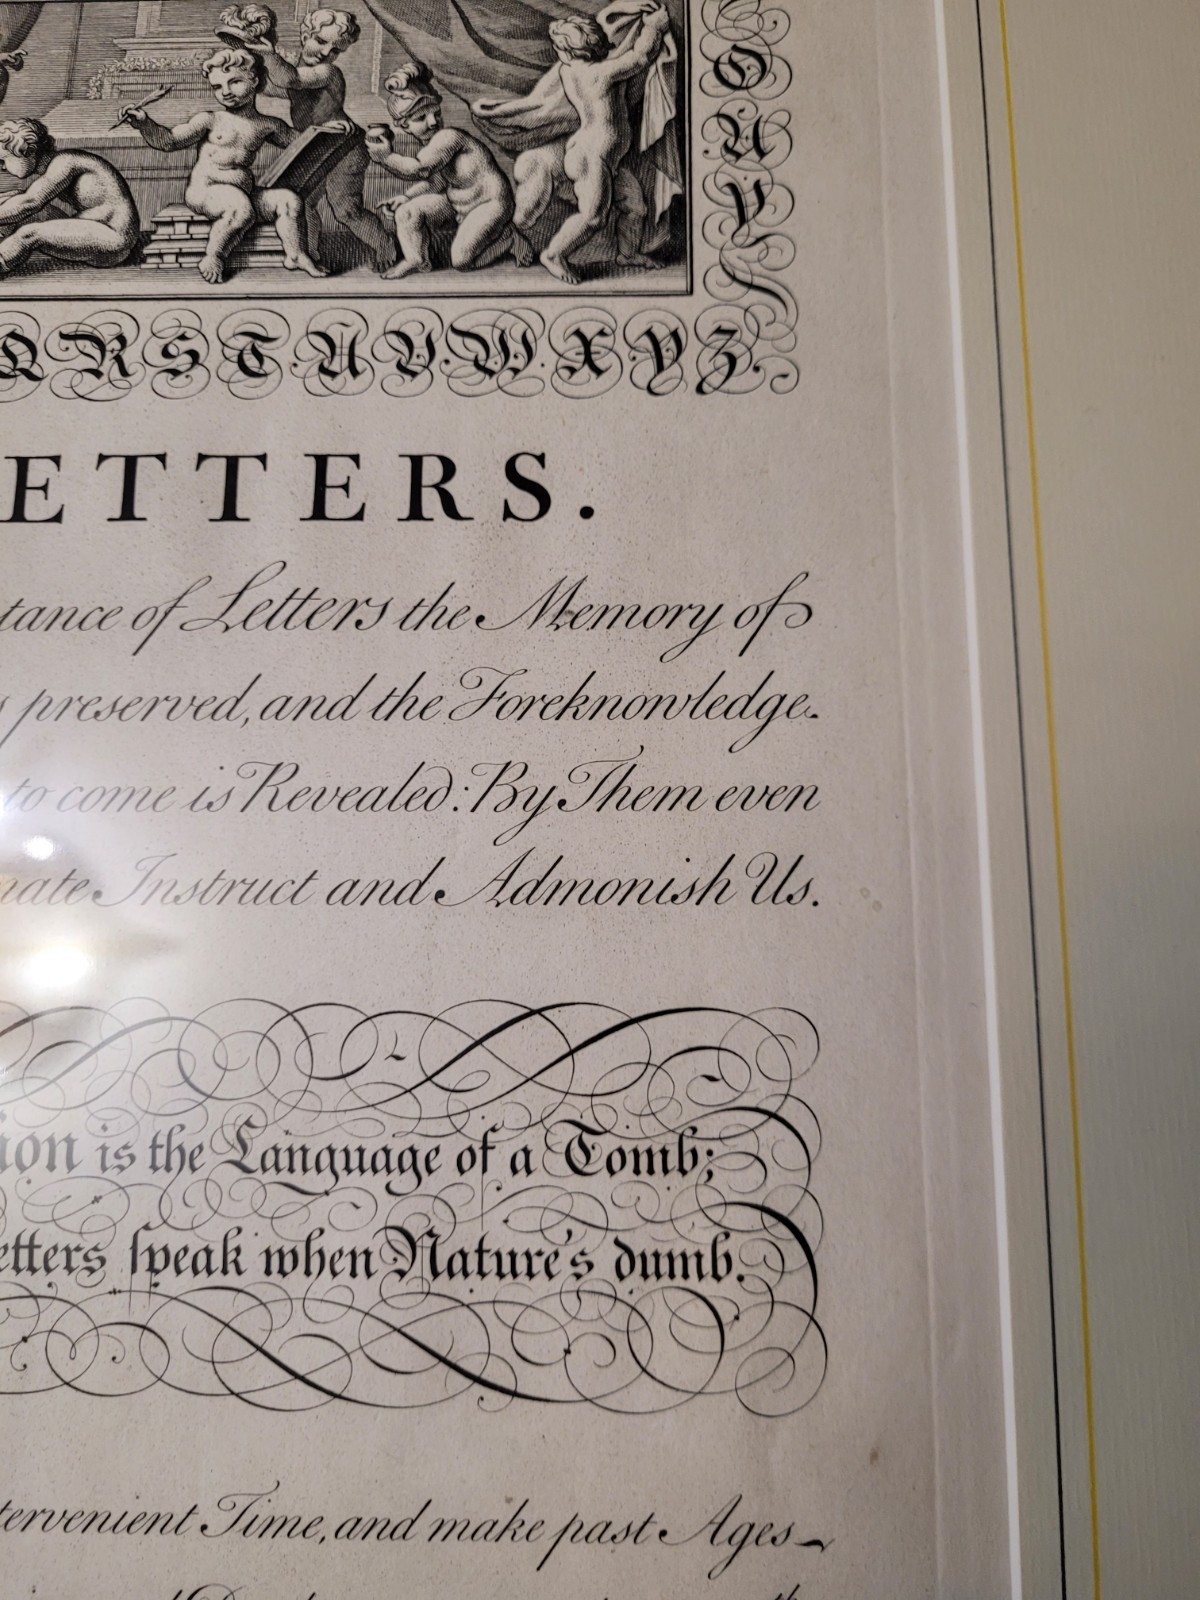 O
U
Y
Q R S T U V W X Y Z.
ETTERS.
tance of Letters the Memory of
preserved, and the Foreknowledge
to come is Revealed: By Them even
nate Instruct and Admonish Us.
ion is the Language of a Tomb;
etters speak when Nature's dumb.
tervenient Time, and make past Ages